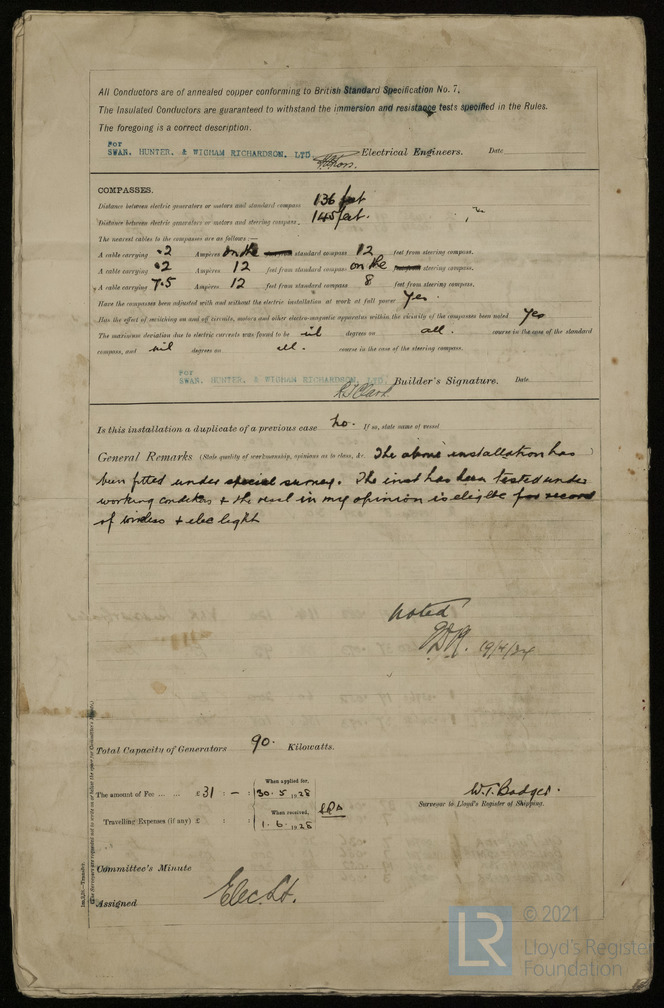 All Conductors are of annealed copper conforming to British Standard Specification No. 7.
The Insulated Conductors are guaranteed to withstand the immersion and resistance tests specified in the Rules.
The foregoing is a correct description.
FOR
SWAN, HUNTER, & WIGHAM RICHARDSON, LTD. Electrical Engineers. Date
COMPASSES.
Distance between electric generators or motors and standard compass 136 feet
Distance between electric generators or motors and steering compass 145 feet.
The nearest cables to the compasses are as follows:—
A cable carrying .2 Ampères on the standard compass 12 feet from steering compass.
A cable carrying .2 Ampères 12 feet from standard compass on the steering compass.
A cable carrying 7.5 Ampères 12 feet from standard compass 8 feet from steering compass.
Have the compasses been adjusted with and without the electric installation at work at full power Yes
Has the effect of switching on and off circuits, motors and other electro-magnetic apparatus within the vicinity of the compasses been noted Yes
The maximum deviation due to electric currents was found to be nil degrees on all. course in the case of the standard
compass, and nil degrees on all. course in the case of the steering compass.
FOR
SWAN, HUNTER, & WIGHAM RICHARDSON, LTD. Builder's Signature. Date
Is this installation a duplicate of a previous case no. If so, state name of vessel
General Remarks (State quality of workmanship, opinions as to class, &c. The above installation has )
been fitted under special survey. The inst has been tested under
working conditions & the vessel in my opinion is eligible for record
of wireless & elec light
Noted
19/4/34
Total Capacity of Generators 90. Kilowatts.
The amount of Fee ... ... £31 : – : When applied for, 30.5.1928
Travelling Expenses (if any) £ : : When received, 1.6.1928
W.T. Badger.
Surveyor to Lloyd's Register of Shipping.
Committee's Minute
Assigned Elec. Lt.
Im.5,26.—Transfer.
(The Surveyors are requested not to write on or below the space for Committee's Minute.)
LR © 2021
Lloyd's Register
Foundation